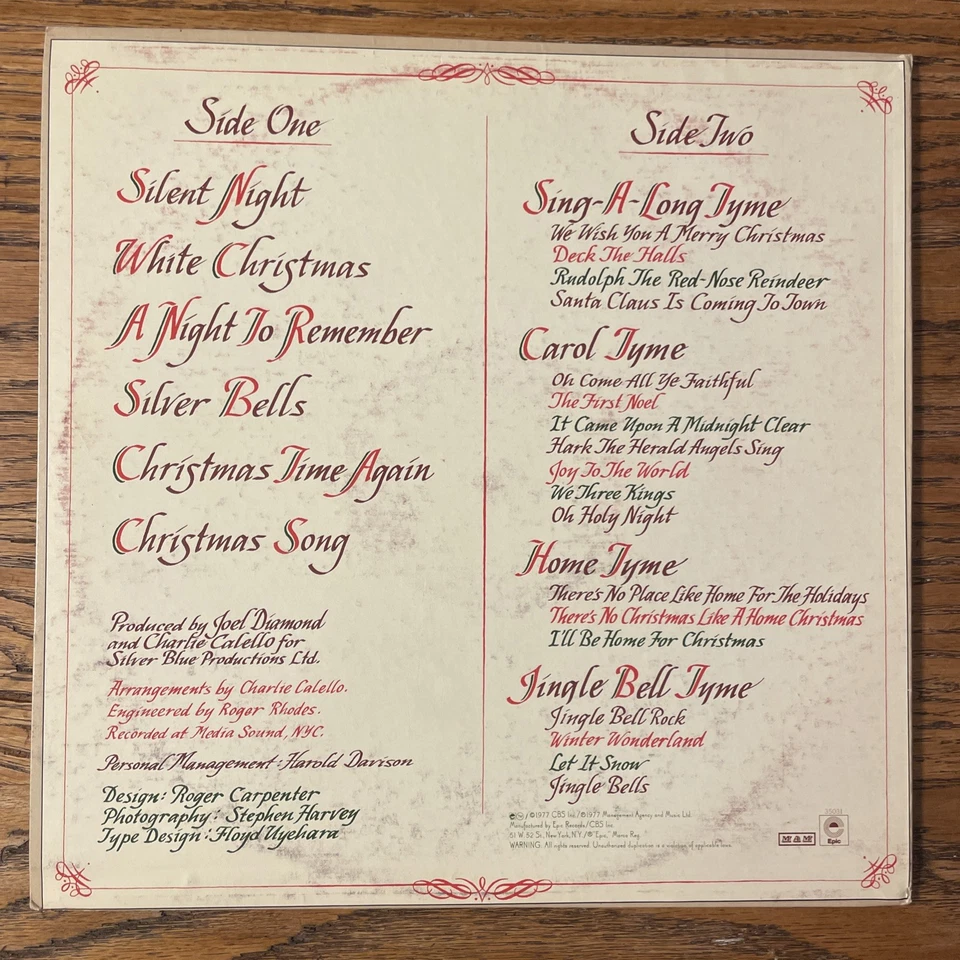 Side One
Silent Night
White Christmas
A Night To Remember
Silver Bells
Christmas Time Again
Christmas Song
Produced by Joel Diamond
and Charlie Calello for
Silver Blue Productions Ltd.
Arrangements by Charlie Calello.
Engineered by Roger Rhodes.
Recorded at Media Sound, NYC.
Personal Management: Harold Davison
Design: Roger Carpenter
Photography: Stephen Harvey
Type Design: Floyd Uyehara
Side Two
Sing-A-Long Tyme
We Wish You A Merry Christmas
Deck The Halls
Rudolph The Red-Nose Reindeer
Santa Claus Is Coming To Town
Carol Tyme
Oh Come All Ye Faithful
The First Noel
It Came Upon A Midnight Clear
Hark The Herald Angels Sing
Joy To The World
We Three Kings
Oh Holy Night
Home Tyme
There's No Place Like Home For The Holidays
There's No Christmas Like A Home Christmas
I'll Be Home For Christmas
Jingle Bell Tyme
Jingle Bell Rock
Winter Wonderland
Let It Snow
Jingle Bells
℗ 1977 CBS Inc./© 1977 Management Agency and Music Ltd.
Manufactured by Epic Records/CBS Inc.
51 W. 52 St., New York, N.Y./® "Epic," Marca Reg.
WARNING: All rights reserved. Unauthorized duplication is a violation of applicable laws.
MAM
Epic